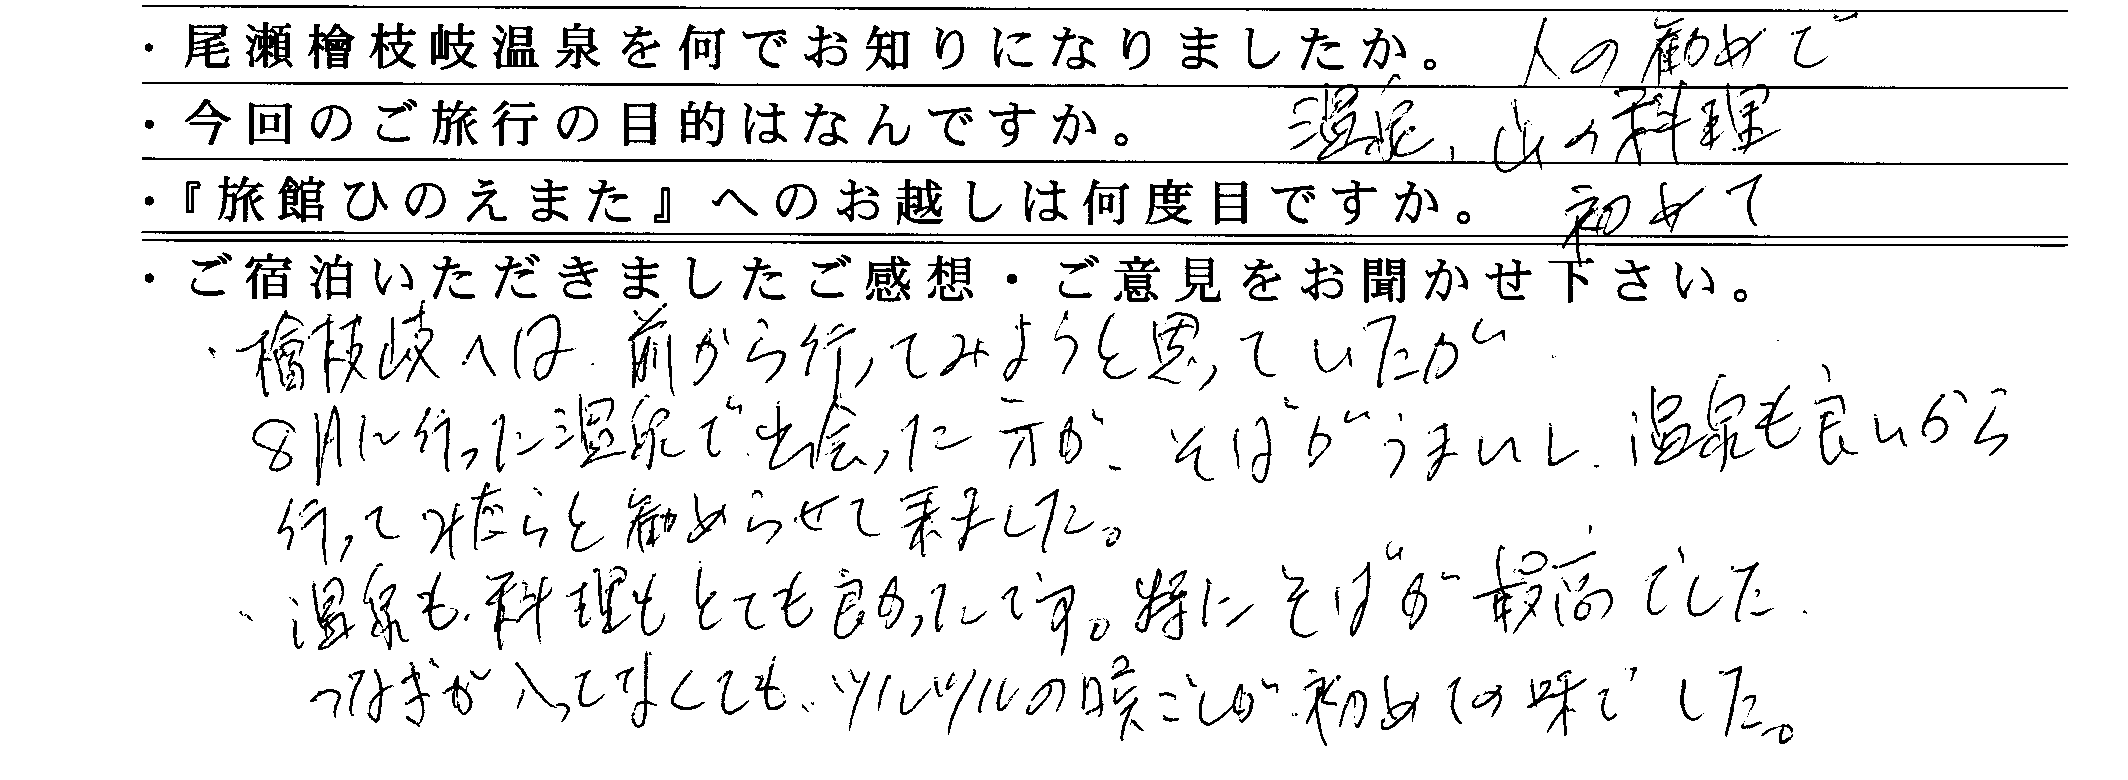 ・尾瀬檜枝岐温泉を何でお知りになりましたか。 人の勧めで
・今回のご旅行の目的はなんですか。 温泉、山の料理
・『旅館ひのえまた』へのお越しは何度目ですか。 初めて
・ご宿泊いただきましたご感想・ご意見をお聞かせ下さい。
・檜枝岐へは、前から行ってみようと思っていたが
8月に行った温泉で出会った方が、そばがうまいし、温泉も良いから
行ってみたらと勧めらせて来ました。
・温泉も、料理もとても良かったです。特にそばが最高でした。
つなぎが入ってなくても、ツルツルの喉ごしが初めての味でした。